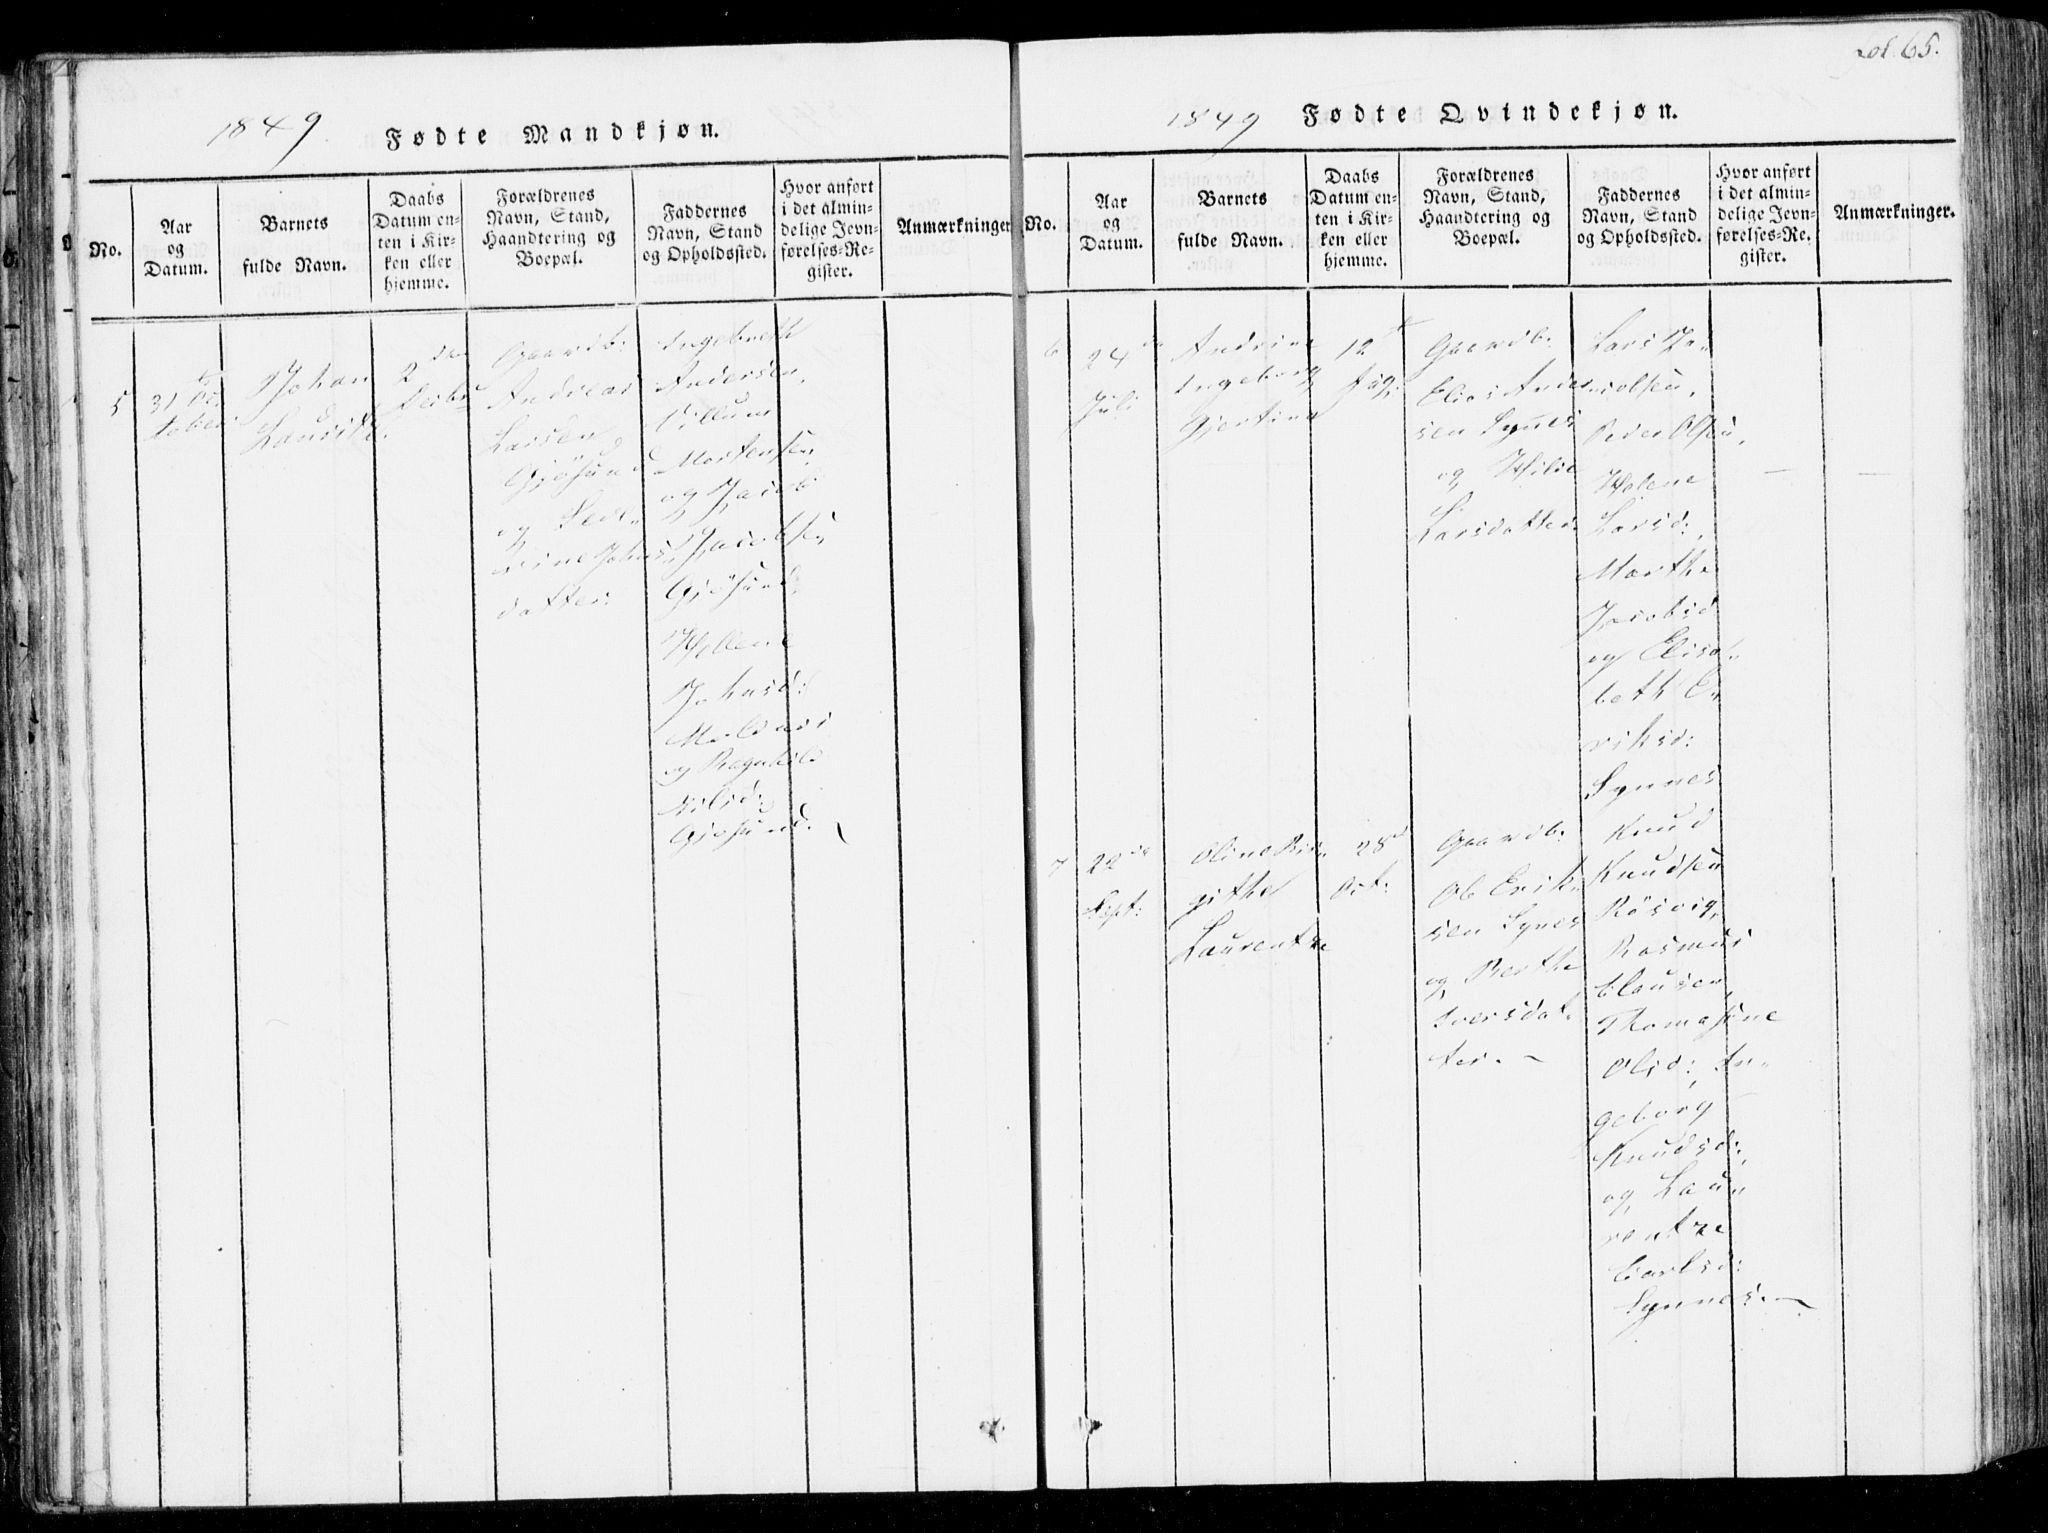 Fol. 65.
1849. Fødte Mandkjøn.
No.
Aar
og
Datum.
Barnets
fulde Navn.
Daabs
Datum en-
ten i Kir-
ken eller
hjemme.
Forældrenes
Navn, Stand,
Haandtering og
Boepæl.
Faddernes
Navn, Stand
og Opholdssted.
Hvor anført
i det almin-
delige Jevn-
førelses-Re-
gister.
Anmærkninger
5
31 Oc
tober
Johan
Laurits.
2
Decbr
Gaardb:
Andreas
Larsen
Gjøsund
og
rine Johns
datter.
Ingebreth
Andersen,
Villum
Mortensen,
og Jacob
Jacobsen
Gjøsund,
Hellene
Johnsd:
og Ragnhild
Nilsd:
Gjøsund.
1849 Fødte Qvindekjøn.
No.
Aar
og
Datum.
Barnets
fulde Navn.
Daabs
Datum en-
ten i Kir-
ken eller
hjemme.
Forældrenes
Navn, Stand,
Haandtering og
Boepæl.
Faddernes
Navn, Stand
og Opholdssted.
Hvor anført
i det almin-
delige Jevn-
førelses-Re-
gister.
Anmærkninger.
6
24
Juli
Andrine
Ingeborg
Gjertine
12
Aug:
Gaardb.
Elias Ander
sen Synnes
og
Larsdatter
Lars
Peder Olsen,
Helene
Larsd:,
Marthe
Jacobsd
og Elisa-
beth E-
riksd:
Synnes
7
22
Sept:
Oline Bir-
githe
Laurentze
28
Oct:
Gaardb.
Ole Erik-
sen Synes
og Berthe
Iversdat-
ter. ~
Knud
Knudsen
Røsvig,
Rasmus
Clausen,
Thomasine
Olsd:, In-
geborg
Knudsd:,
og Lau-
rentze
Carlsd:
Synnes. ~